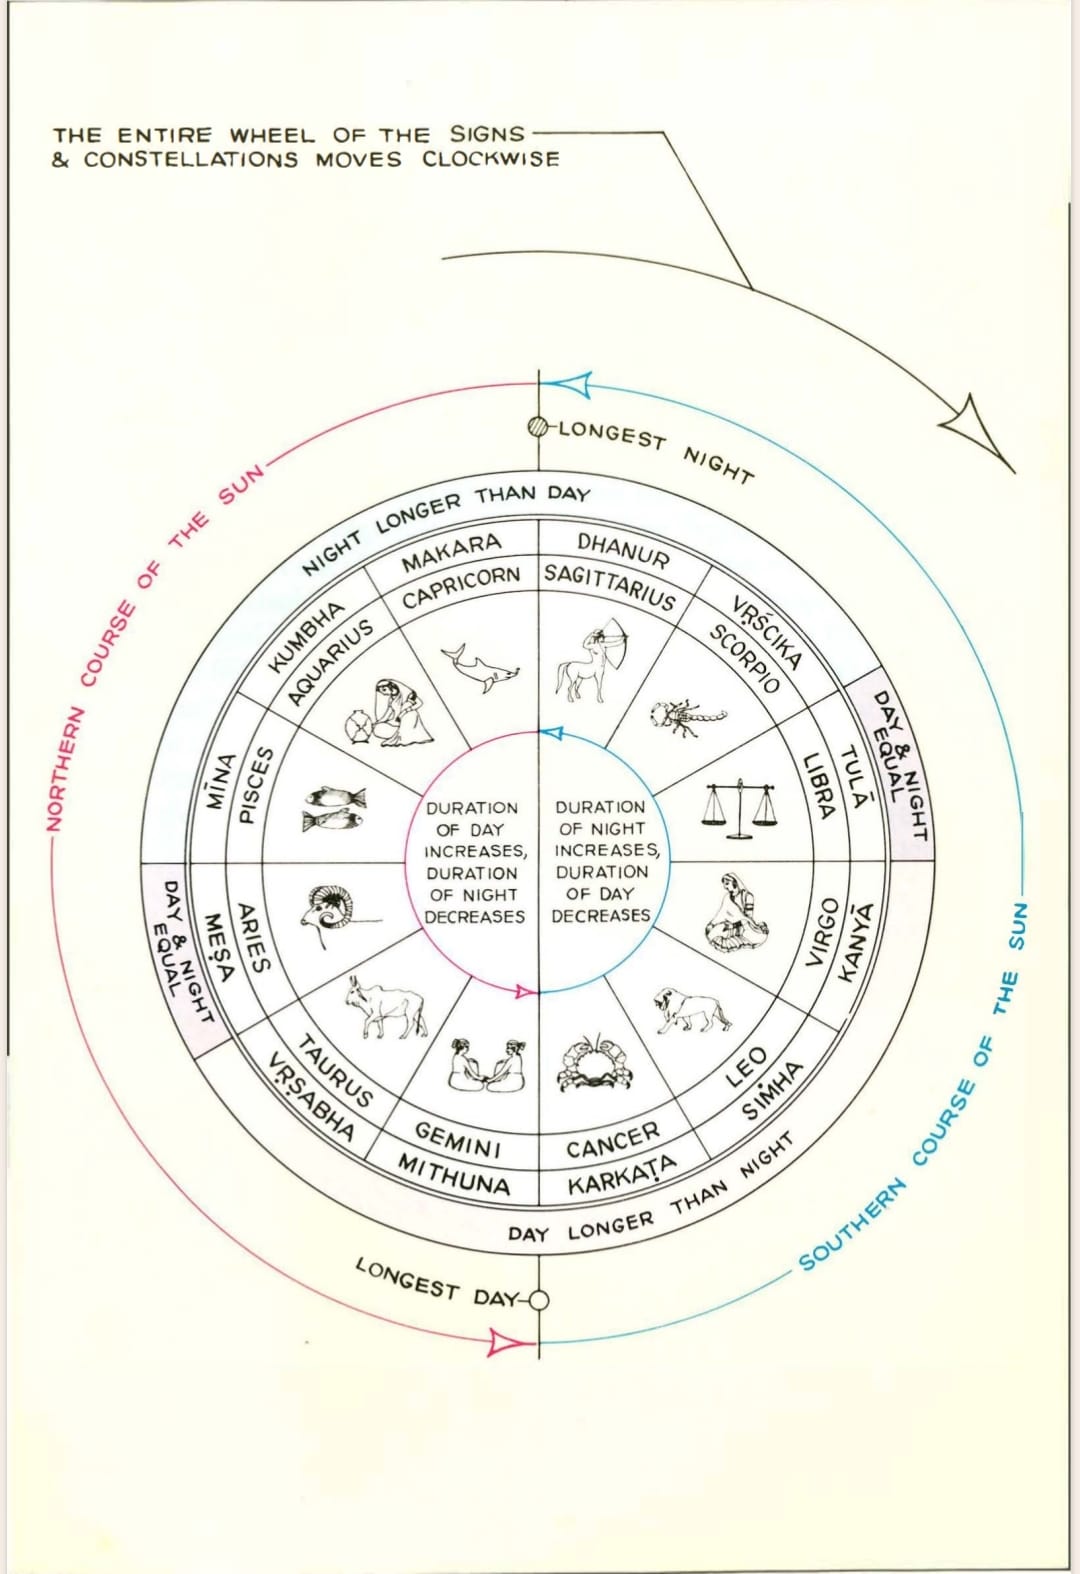 THE ENTIRE WHEEL OF THE SIGNS
& CONSTELLATIONS MOVES CLOCKWISE
LONGEST NIGHT
NORTHERN COURSE OF THE SUN
SOUTHERN COURSE OF THE SUN
NIGHT LONGER THAN DAY
MAKARA
CAPRICORN
DHANUR
SAGITTARIUS
VṚŚCIKA
SCORPIO
DAY & NIGHT
EQUAL
TULĀ
LIBRA
KANYĀ
VIRGO
SIṀHA
LEO
CANCER
KARKAṬA
GEMINI
MITHUNA
TAURUS
VṚṢABHA
ARIES
MEṢA
DAY & NIGHT
EQUAL
MĪNA
PISCES
KUMBHA
AQUARIUS
DURATION
OF DAY
INCREASES,
DURATION
OF NIGHT
DECREASES
DURATION
OF NIGHT
INCREASES,
DURATION
OF DAY
DECREASES
DAY LONGER THAN NIGHT
LONGEST DAY